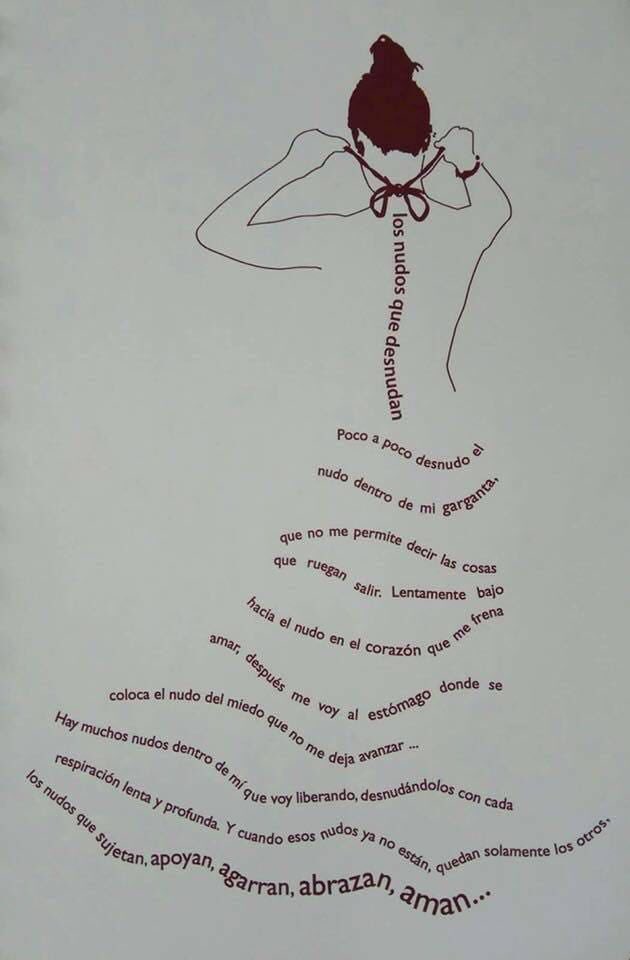 los nudos que desnudan
Poco a poco desnudo el
nudo dentro de mi garganta,
que no me permite decir las cosas
que ruegan salir. Lentamente bajo
hacia el nudo en el corazón que me frena
amar, después me voy al estómago donde se
coloca el nudo del miedo que no me deja avanzar ...
Hay muchos nudos dentro de mí que voy liberando, desnudándolos con cada
respiración lenta y profunda. Y cuando esos nudos ya no están, quedan solamente los otros,
los nudos que sujetan, apoyan, agarran, abrazan, aman...